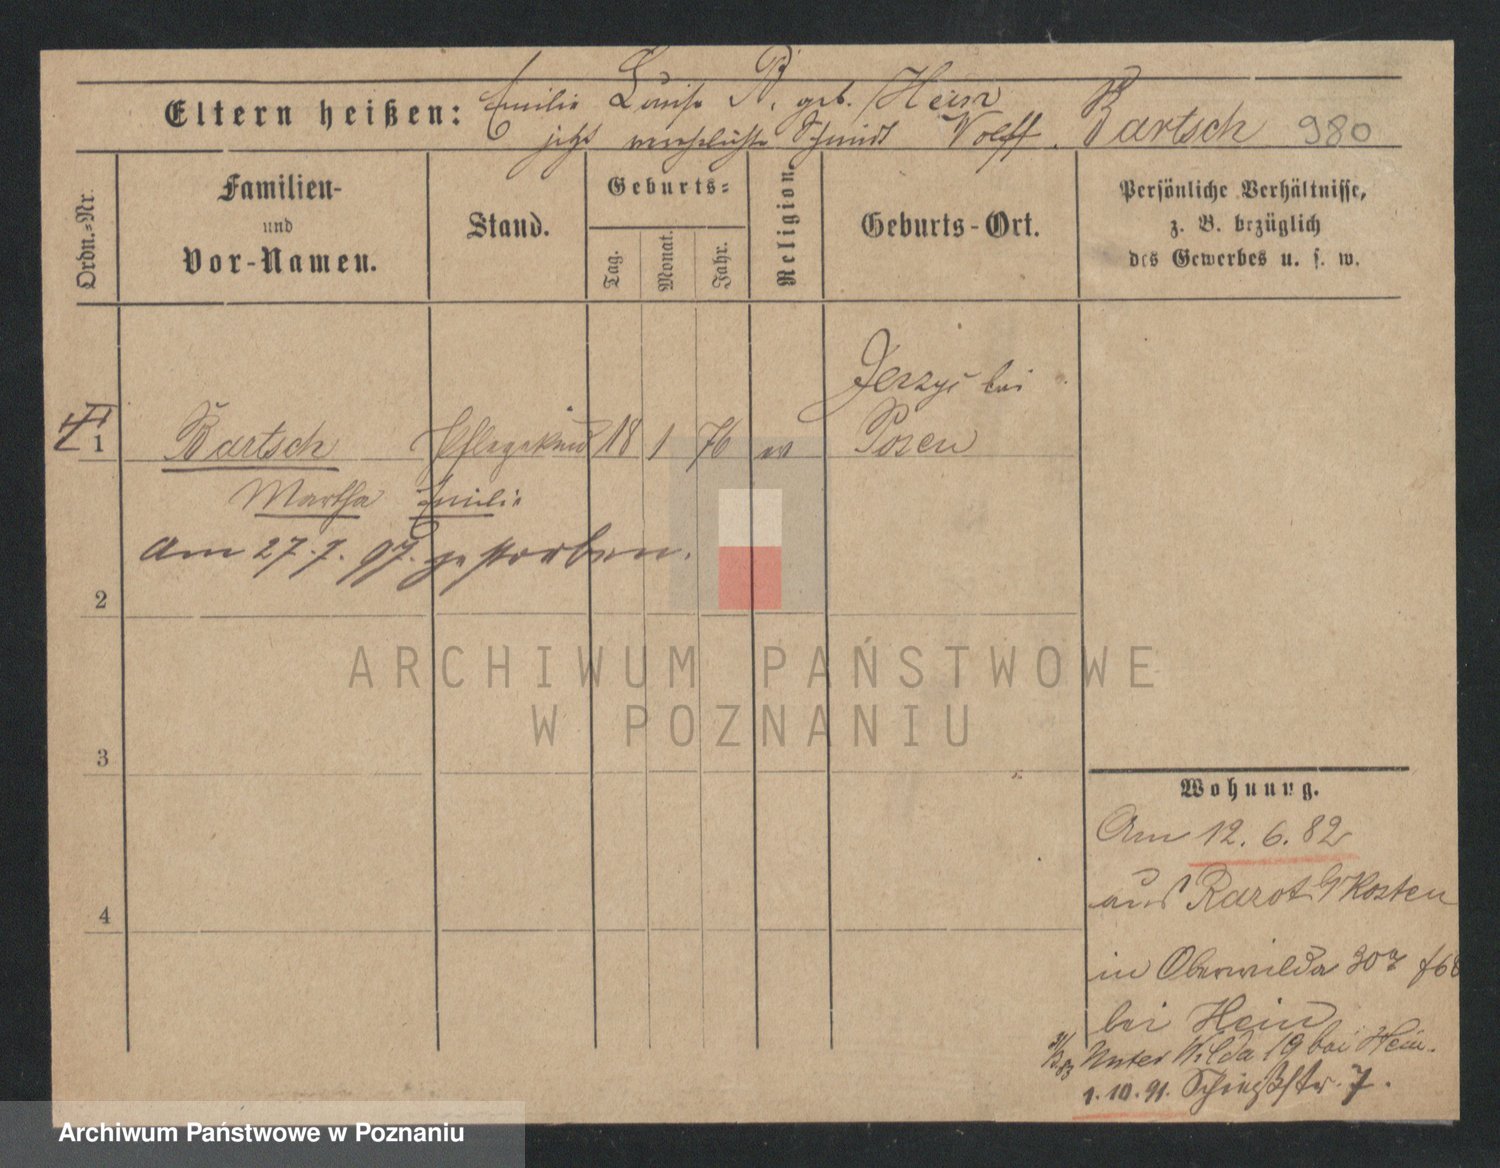 Eltern heißen: Emilie Louise B. geb. Hein
jetzt verehelichte Schmidt Wolff. Bartsch 980
Ordn.-Nr.
Familien-
und
Vor-Namen.
Stand.
Geburts-
Tag.
Monat.
Jahr.
Religion.
Geburts-Ort.
Persönliche Verhältnisse,
z. B. bezüglich
des Gewerbes u. s. w.
Jerzyc bei
1 Bartsch Pflegekind 18 1 76 ev Posen
Martha Emilie
Am 27.7.97. gestorben.
2
3
4
ARCHIWUM PAŃSTWOWE
W POZNANIU
Wohnung.
Am 12.6.82
aus Rarot Kosten
in Oberwilda 30
bei Hein
Unter Wilda 19 bei Hein.
1.10.91. Schießstr. 7.
Archiwum Państwowe w Poznaniu